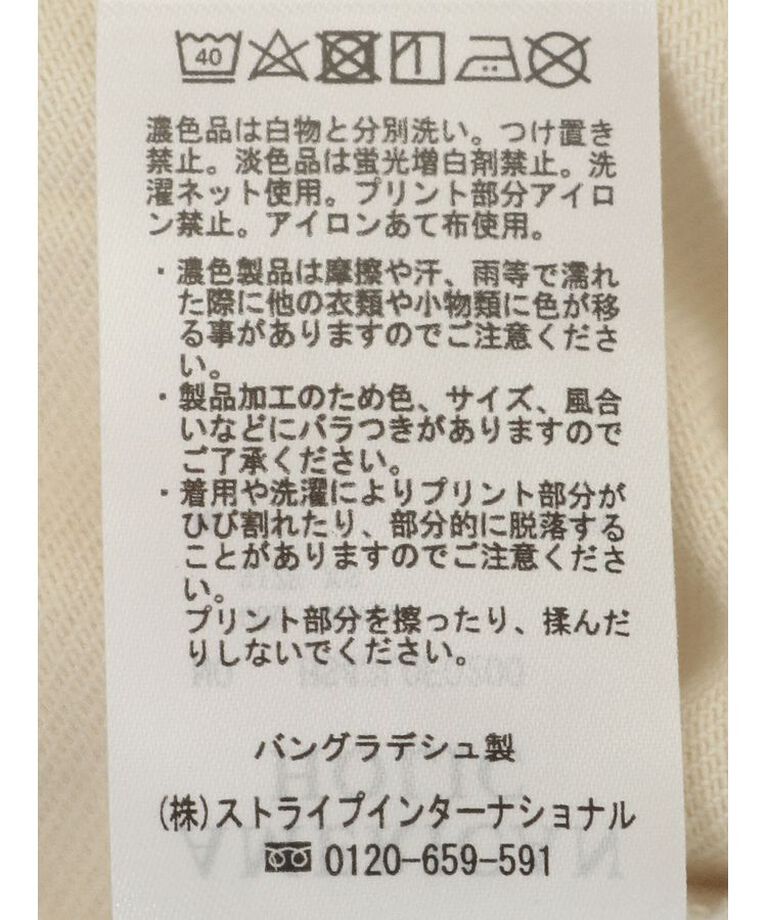 40
濃色品は白物と分別洗い。つけ置き
禁止。淡色品は蛍光増白剤禁止。洗
濯ネット使用。プリント部分アイロ
ン禁止。アイロンあて布使用。
・濃色製品は摩擦や汗、雨等で濡れ
た際に他の衣類や小物類に色が移
る事がありますのでご注意くださ
い。
・製品加工のため色、サイズ、風合
いなどにバラつきがありますので
ご了承ください。
・着用や洗濯によりプリント部分が
ひび割れたり、部分的に脱落する
ことがありますのでご注意くださ
い。
プリント部分を擦ったり、揉んだ
りしないでください。
バングラデシュ製
(株)ストライプインターナショナル
0120-659-591